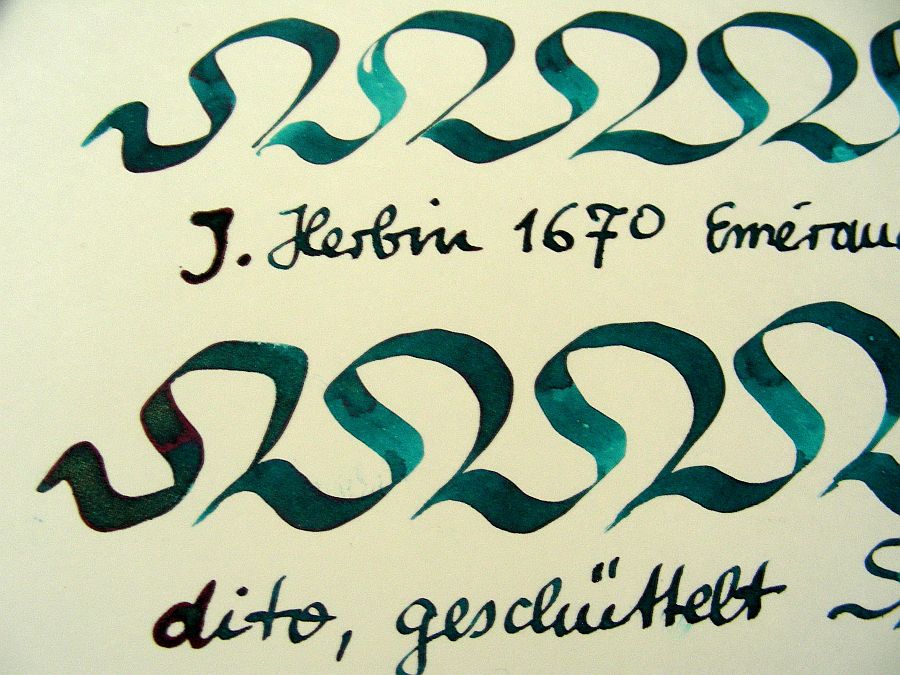 J. Herbin 1670 Emérau
dito, geschüttelt